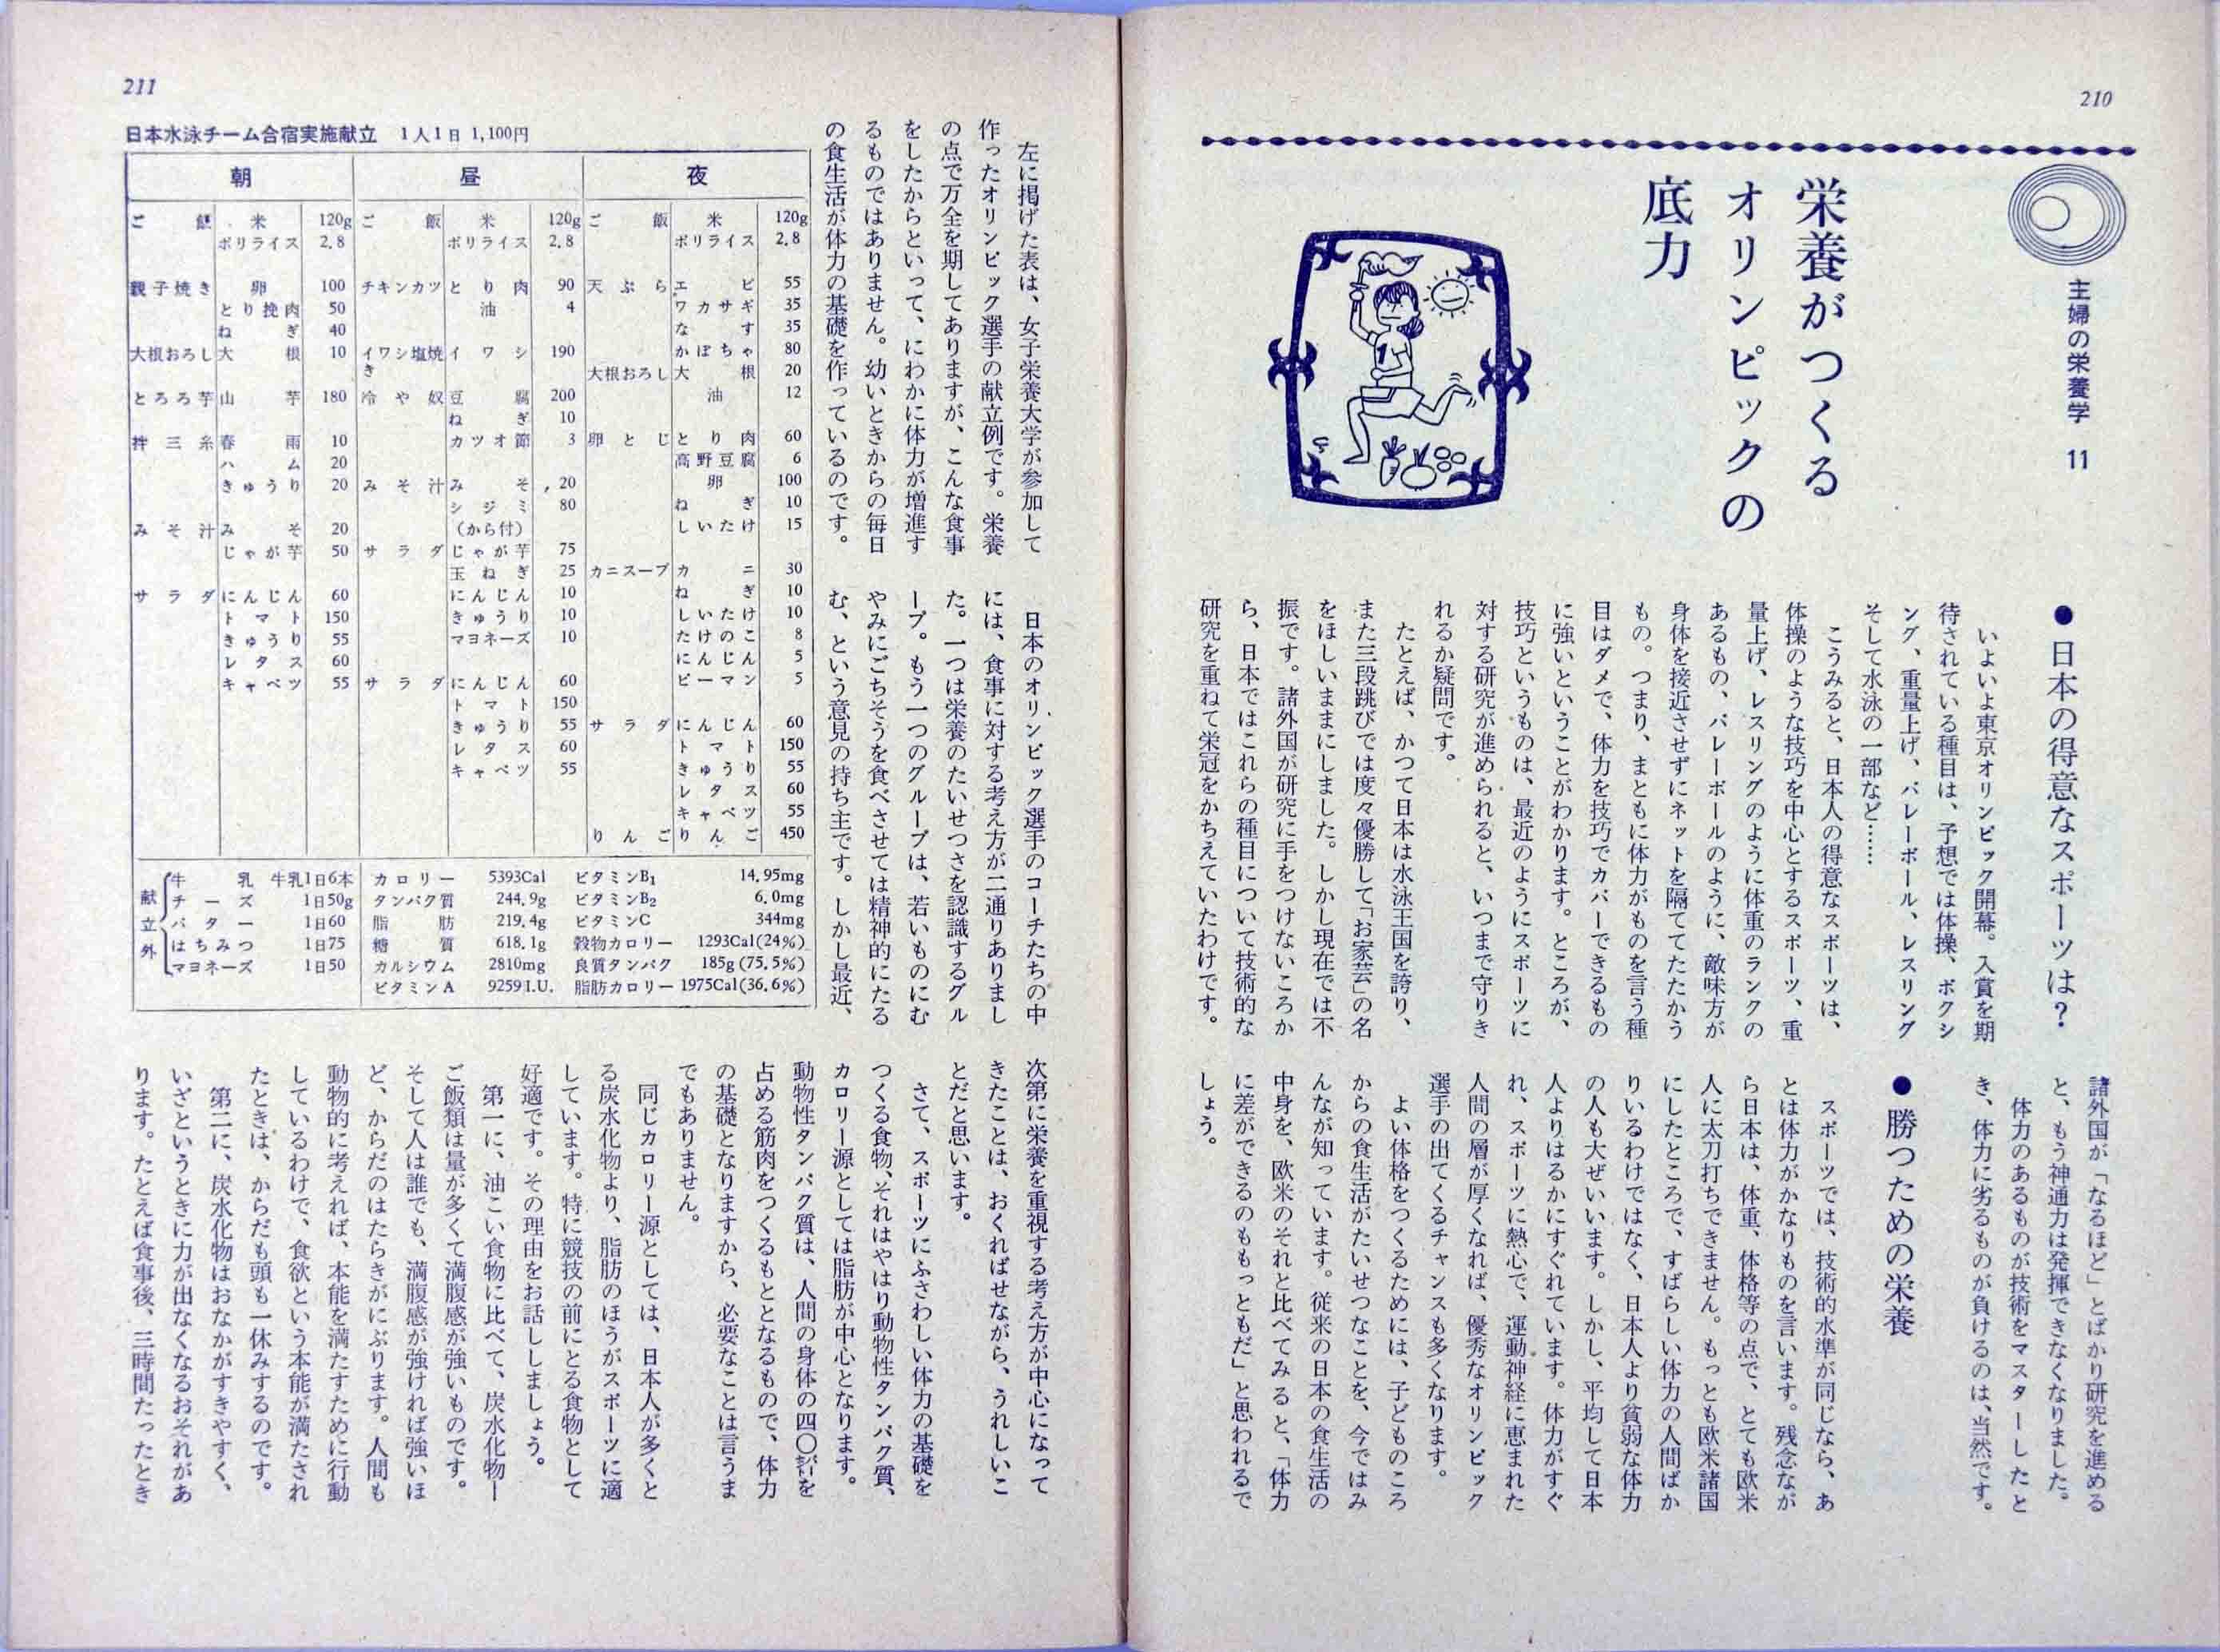 210
主婦の栄養学 11
栄養がつくる
オリンピックの
底力
●日本の得意なスポーツは?
いよいよ東京オリンピック開幕。入賞を期
待されている種目は、予想では体操、ボクシ
ング、重量上げ、バレーボール、レスリング
そして水泳の一部など……
こうみると、日本人の得意なスポーツは、
体操のような技巧を中心とするスポーツ、重
量上げ、レスリングのように体重のランクの
あるもの、バレーボールのように、敵味方が
身体を接近させずにネットを隔ててたたかう
もの。つまり、まともに体力がものを言う種
目はダメで、体力を技巧でカバーできるもの
に強いということがわかります。ところが、
技巧というものは、最近のようにスポーツに
対する研究が進められると、いつまで守りき
れるか疑問です。
たとえば、かつて日本は水泳王国を誇り、
また三段跳びでは度々優勝して「お家芸」の名
をほしいままにしました。しかし現在では不
振です。諸外国が研究に手をつけないころか
ら、日本ではこれらの種目について技術的な
研究を重ねて栄冠をかちえていたわけです。
諸外国が「なるほど」とばかり研究を進める
と、もう神通力は発揮できなくなりました。
体力のあるものが技術をマスターしたと
き、体力に劣るものが負けるのは、当然です。
●勝つための栄養
スポーツでは、技術的水準が同じなら、あ
とは体力がかなりものを言います。残念なが
ら日本は、体重、体格等の点で、とても欧米
人に太刀打ちできません。もっとも欧米諸国
にしたところで、すばらしい体力の人間ばか
りいるわけではなく、日本人より貧弱な体力
の人も大ぜいいます。しかし、平均して日本
人よりはるかにすぐれています。体力がすぐ
れ、スポーツに熱心で、運動神経に恵まれた
人間の層が厚くなれば、優秀なオリンピック
選手の出てくるチャンスも多くなります。
よい体格をつくるためには、子どものころ
からの食生活がたいせつなことを、今ではみ
んなが知っています。従来の日本の食生活の
中身を、欧米のそれと比べてみると、「体力
に差ができるのももっともだ」と思われるで
しょう。
211
左に掲げた表は、女子栄養大学が参加して
作ったオリンピック選手の献立例です。栄養
の点で万全を期してありますが、こんな食事
をしたからといって、にわかに体力が増進す
るものではありません。幼いときからの毎日
の食生活が体力の基礎を作っているのです。
日本のオリンピック選手のコーチたちの中
には、食事に対する考え方が二通りありまし
た。一つは栄養のたいせつさを認識するグル
ープ。もう一つのグループは、若いものにむ
やみにごちそうを食べさせては精神的にたる
む、という意見の持ち主です。しかし最近、
次第に栄養を重視する考え方が中心になって
きたことは、おくればせながら、うれしいこ
とだと思います。
さて、スポーツにふさわしい体力の基礎を
つくる食物、それはやはり動物性タンパク質、
カロリー源としては脂肪が中心となります。
動物性タンパク質は、人間の身体の四〇㌫を
占める筋肉をつくるもととなるもので、体力
の基礎となりますから、必要なことは言うま
でもありません。
同じカロリー源としては、日本人が多くと
る炭水化物より、脂肪のほうがスポーツに適
しています。特に競技の前にとる食物として
好適です。その理由をお話ししましょう。
第一に、油こい食物に比べて、炭水化物ー
ご飯類は量が多くて満腹感が強いものです。
そして人は誰でも、満腹感が強ければ強いほ
ど、からだのはたらきがにぶります。人間も
動物的に考えれば、本能を満たすために行動
しているわけで、食欲という本能が満たされ
たときは、からだも頭も一休みするのです。
第二に、炭水化物はおなかがすきやすく、
いざというときに力が出なくなるおそれがあ
ります。たとえば食事後、三時間たったとき
日本水泳チーム合宿実施献立 1人1日 1,100円
朝
ご飯 米 120g
ポリライス 2.8
親子焼き 卵 100
とり挽肉 50
ねぎ 40
大根おろし 大根 10
とろろ芋 山芋 180
拌三糸 春雨 10
ハム 20
きゅうり 20
みそ汁 みそ 20
じゃが芋 50
サラダ にんじん 60
トマト 150
きゅうり 55
レタス 60
キャベツ 55
昼
ご飯 米 120g
ポリライス 2.8
チキンカツ とり肉 90
油 4
イワシ塩焼き イワシ 190
冷や奴 豆腐 200
ねぎ 10
カツオ節 3
みそ汁 みそ 20
シジミ 80
(から付)
サラダ じゃが芋 75
玉ねぎ 25
にんじん 10
きゅうり 10
マヨネーズ 10
サラダ にんじん 60
トマト 150
きゅうり 55
レタス 60
キャベツ 55
夜
ご飯 米 120g
ポリライス 2.8
天ぷら エビ 55
ワカサギ 35
なす 35
かぼちゃ 80
大根おろし 大根 20
油 12
卵とじ とり肉 60
高野豆腐 6
卵 100
ねぎ 10
しいたけ 15
カニスープ カニ 30
ねぎ 10
しいたけ 10
たけのこ 8
にんじん 5
ピーマン 5
サラダ にんじん 60
トマト 150
きゅうり 55
レタス 60
キャベツ 55
りんご りんご 450
献立外
牛乳 牛乳1日6本
チーズ 1日50g
バター 1日60
はちみつ 1日75
マヨネーズ 1日50
カロリー 5393Cal
タンパク質 244.9g
脂肪 219.4g
糖質 618.1g
カルシウム 2810mg
ビタミンA 9259I.U.
ビタミンB₁ 14.95mg
ビタミンB₂ 6.0mg
ビタミンC 344mg
穀物カロリー 1293Cal(24%)
良質タンパク 185g(75.5%)
脂肪カロリー 1975Cal(36.6%)